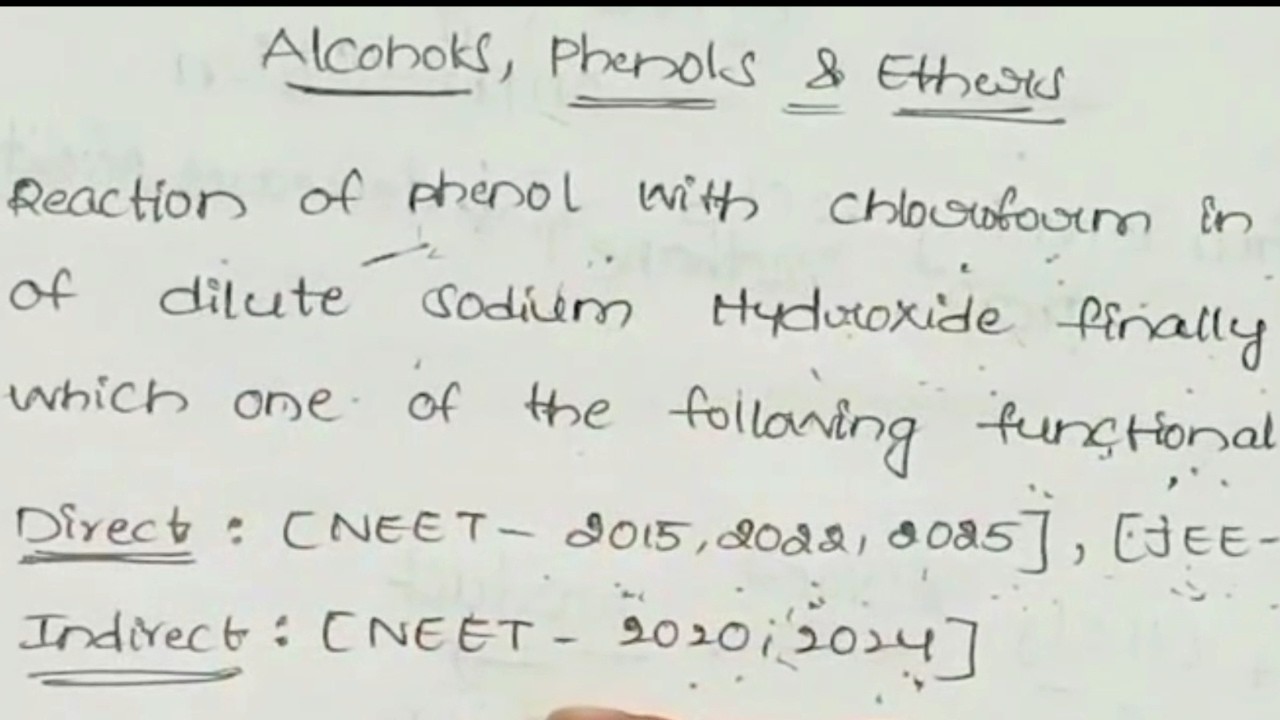 Alcohols, Phenols & Ethers
Reaction of phenol with chloroform in
of dilute sodium Hydroxide finally
which one of the following functional
Direct : [NEET - 2015, 2022, 2025], [JEE-
Indirect : [NEET - 2020, 2024]